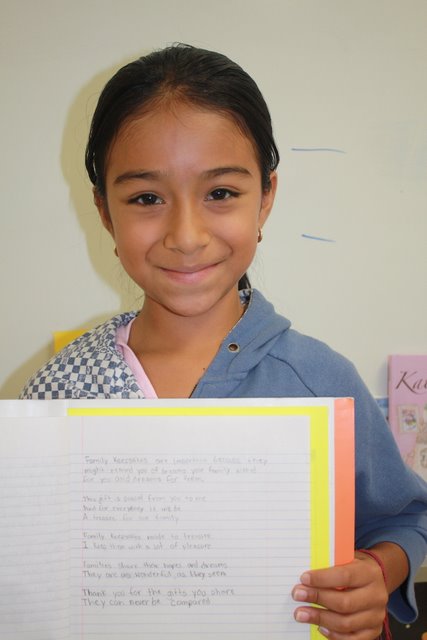 Family Keepsakes are important because they
might remind you of dreams your family
For you and dreams for them.
This gift is passed from you to me
And for everyone in
A treasure for our family
Family Keepsakes made to treasure
I keep them with a lot of pleasure
Families share their hopes and dreams
They are as wonderful as they seem
Thank you for the gifts you share
They can never be compared
Ka